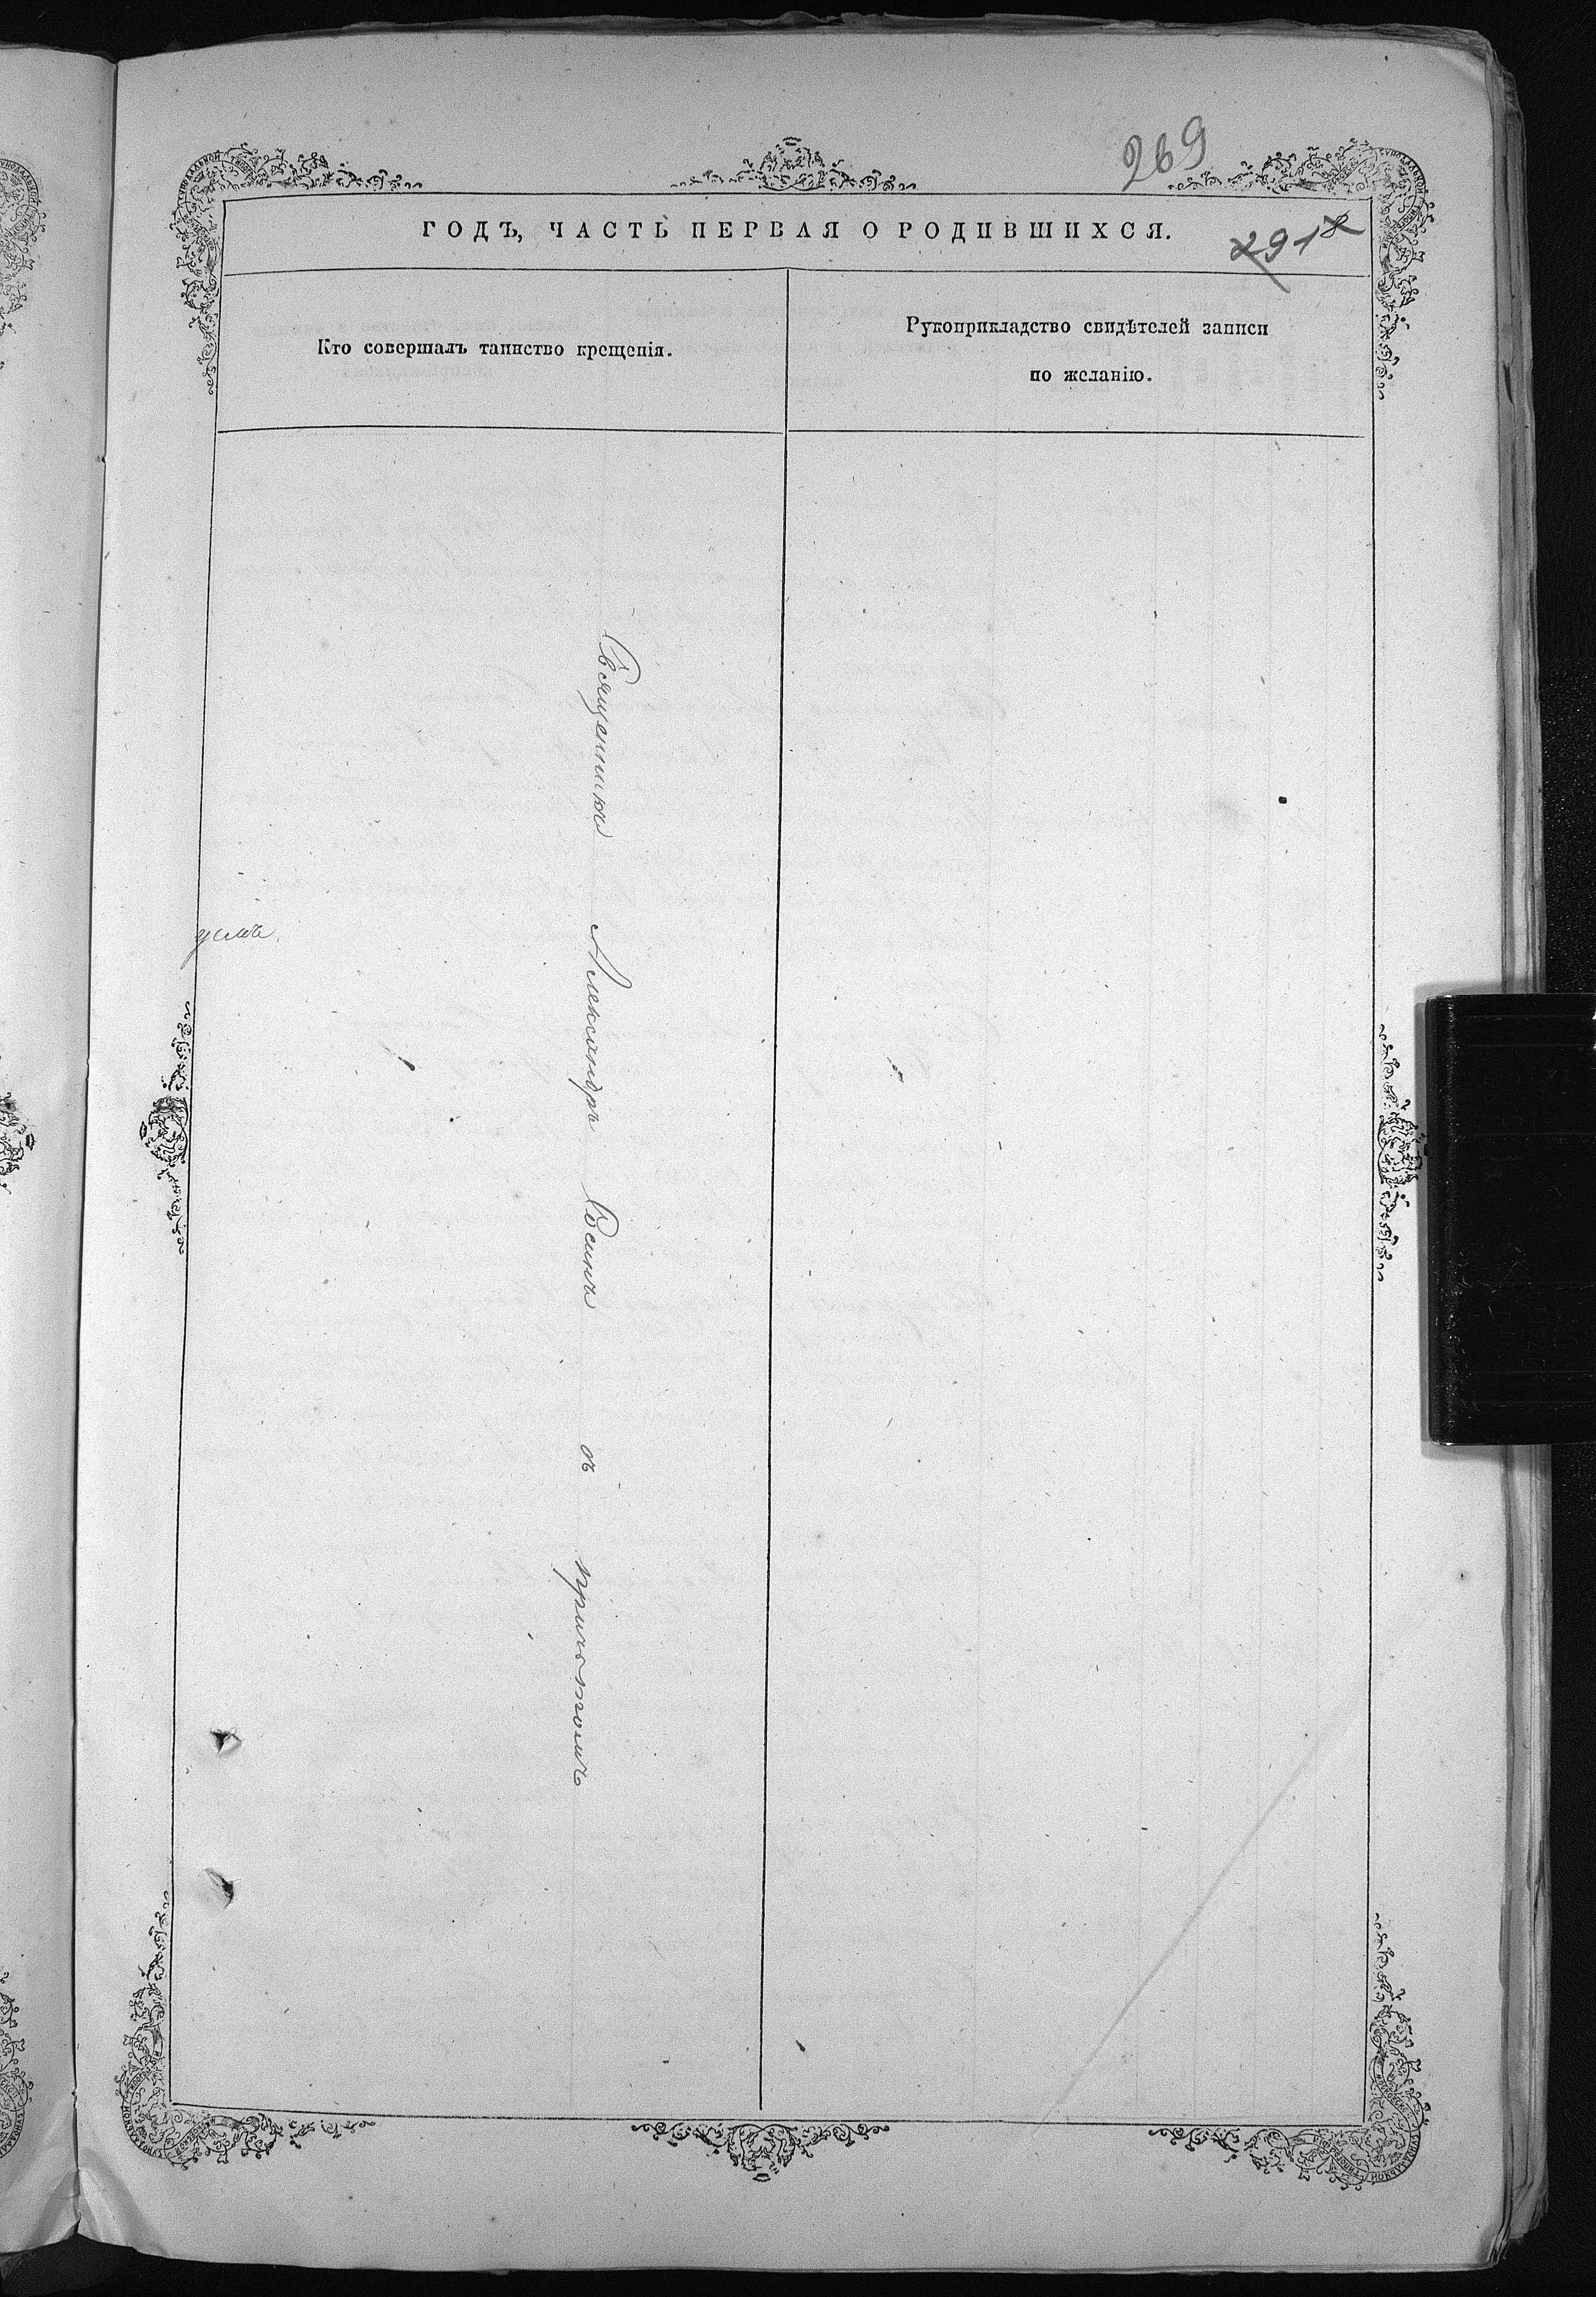 269
ГОДЪ, ЧАСТЬ ПЕРВАЯ О РОДИВШИХСЯ.
291
Кто совершалъ таинство крещенія.
Рукоприкладство свидѣтелей записи
по желанію.
Священникъ Александръ съ причтомъ